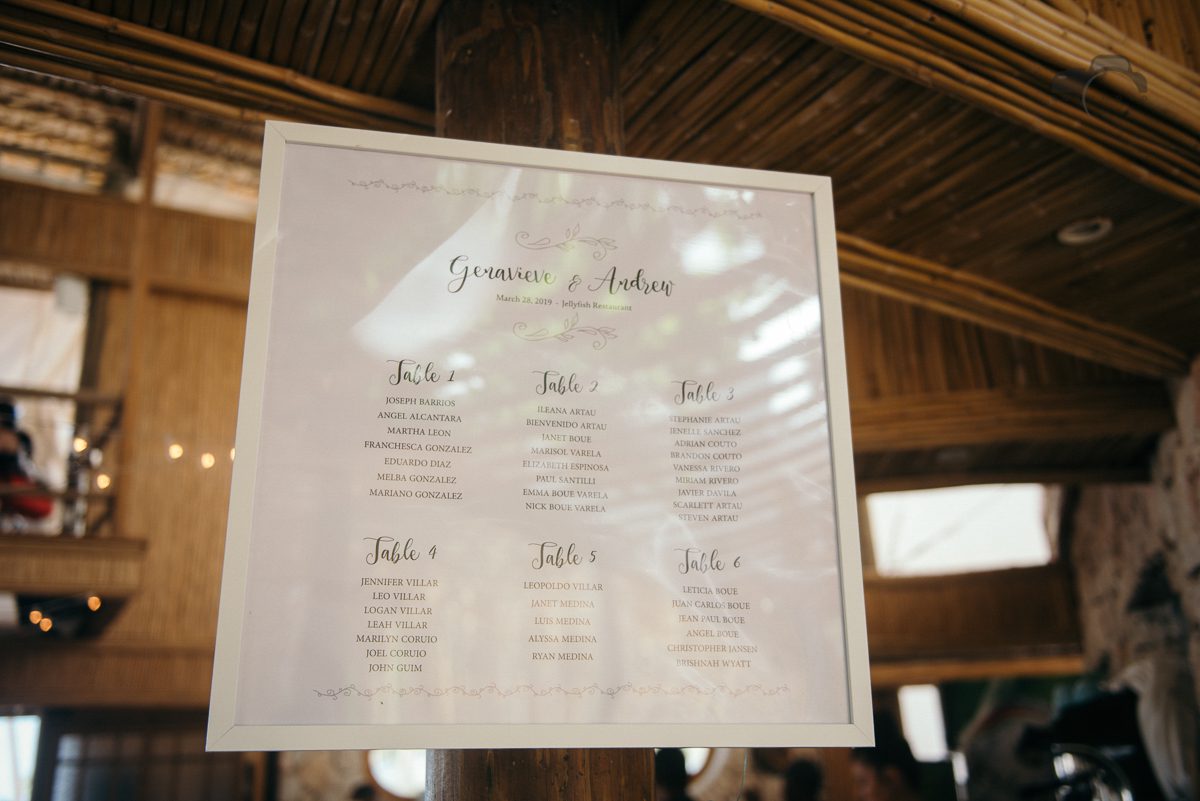 Genavieve & Andrew
March 28, 2019 - Jellyfish Restaurant
Table 1
JOSEPH BARRIOS
ANGEL ALCANTARA
MARTHA LEON
FRANCHESCA GONZALEZ
EDUARDO DIAZ
MELBA GONZALEZ
MARIANO GONZALEZ
Table 2
ILEANA ARTAU
BIENVENIDO ARTAU
JANET BOUE
MARISOL VARELA
ELIZABETH ESPINOSA
PAUL SANTILLI
EMMA BOUE VARELA
NICK BOUE VARELA
Table 3
STEPHANIE ARTAU
JENELLE SANCHEZ
ADRIAN COUTO
BRANDON COUTO
VANESSA RIVERO
MIRIAM RIVERO
JAVIER DAVILA
SCARLETT ARTAU
STEVEN ARTAU
Table 4
JENNIFER VILLAR
LEO VILLAR
LOGAN VILLAR
LEAH VILLAR
MARILYN CORUJO
JOEL CORUJO
JOHN GUIM
Table 5
LEOPOLDO VILLAR
JANET MEDINA
LUIS MEDINA
ALYSSA MEDINA
RYAN MEDINA
Table 6
LETICIA BOUE
JUAN CARLOS BOUE
JEAN PAUL BOUE
ANGEL BOUE
CHRISTOPHER JANSEN
BRISHNAH WYATT